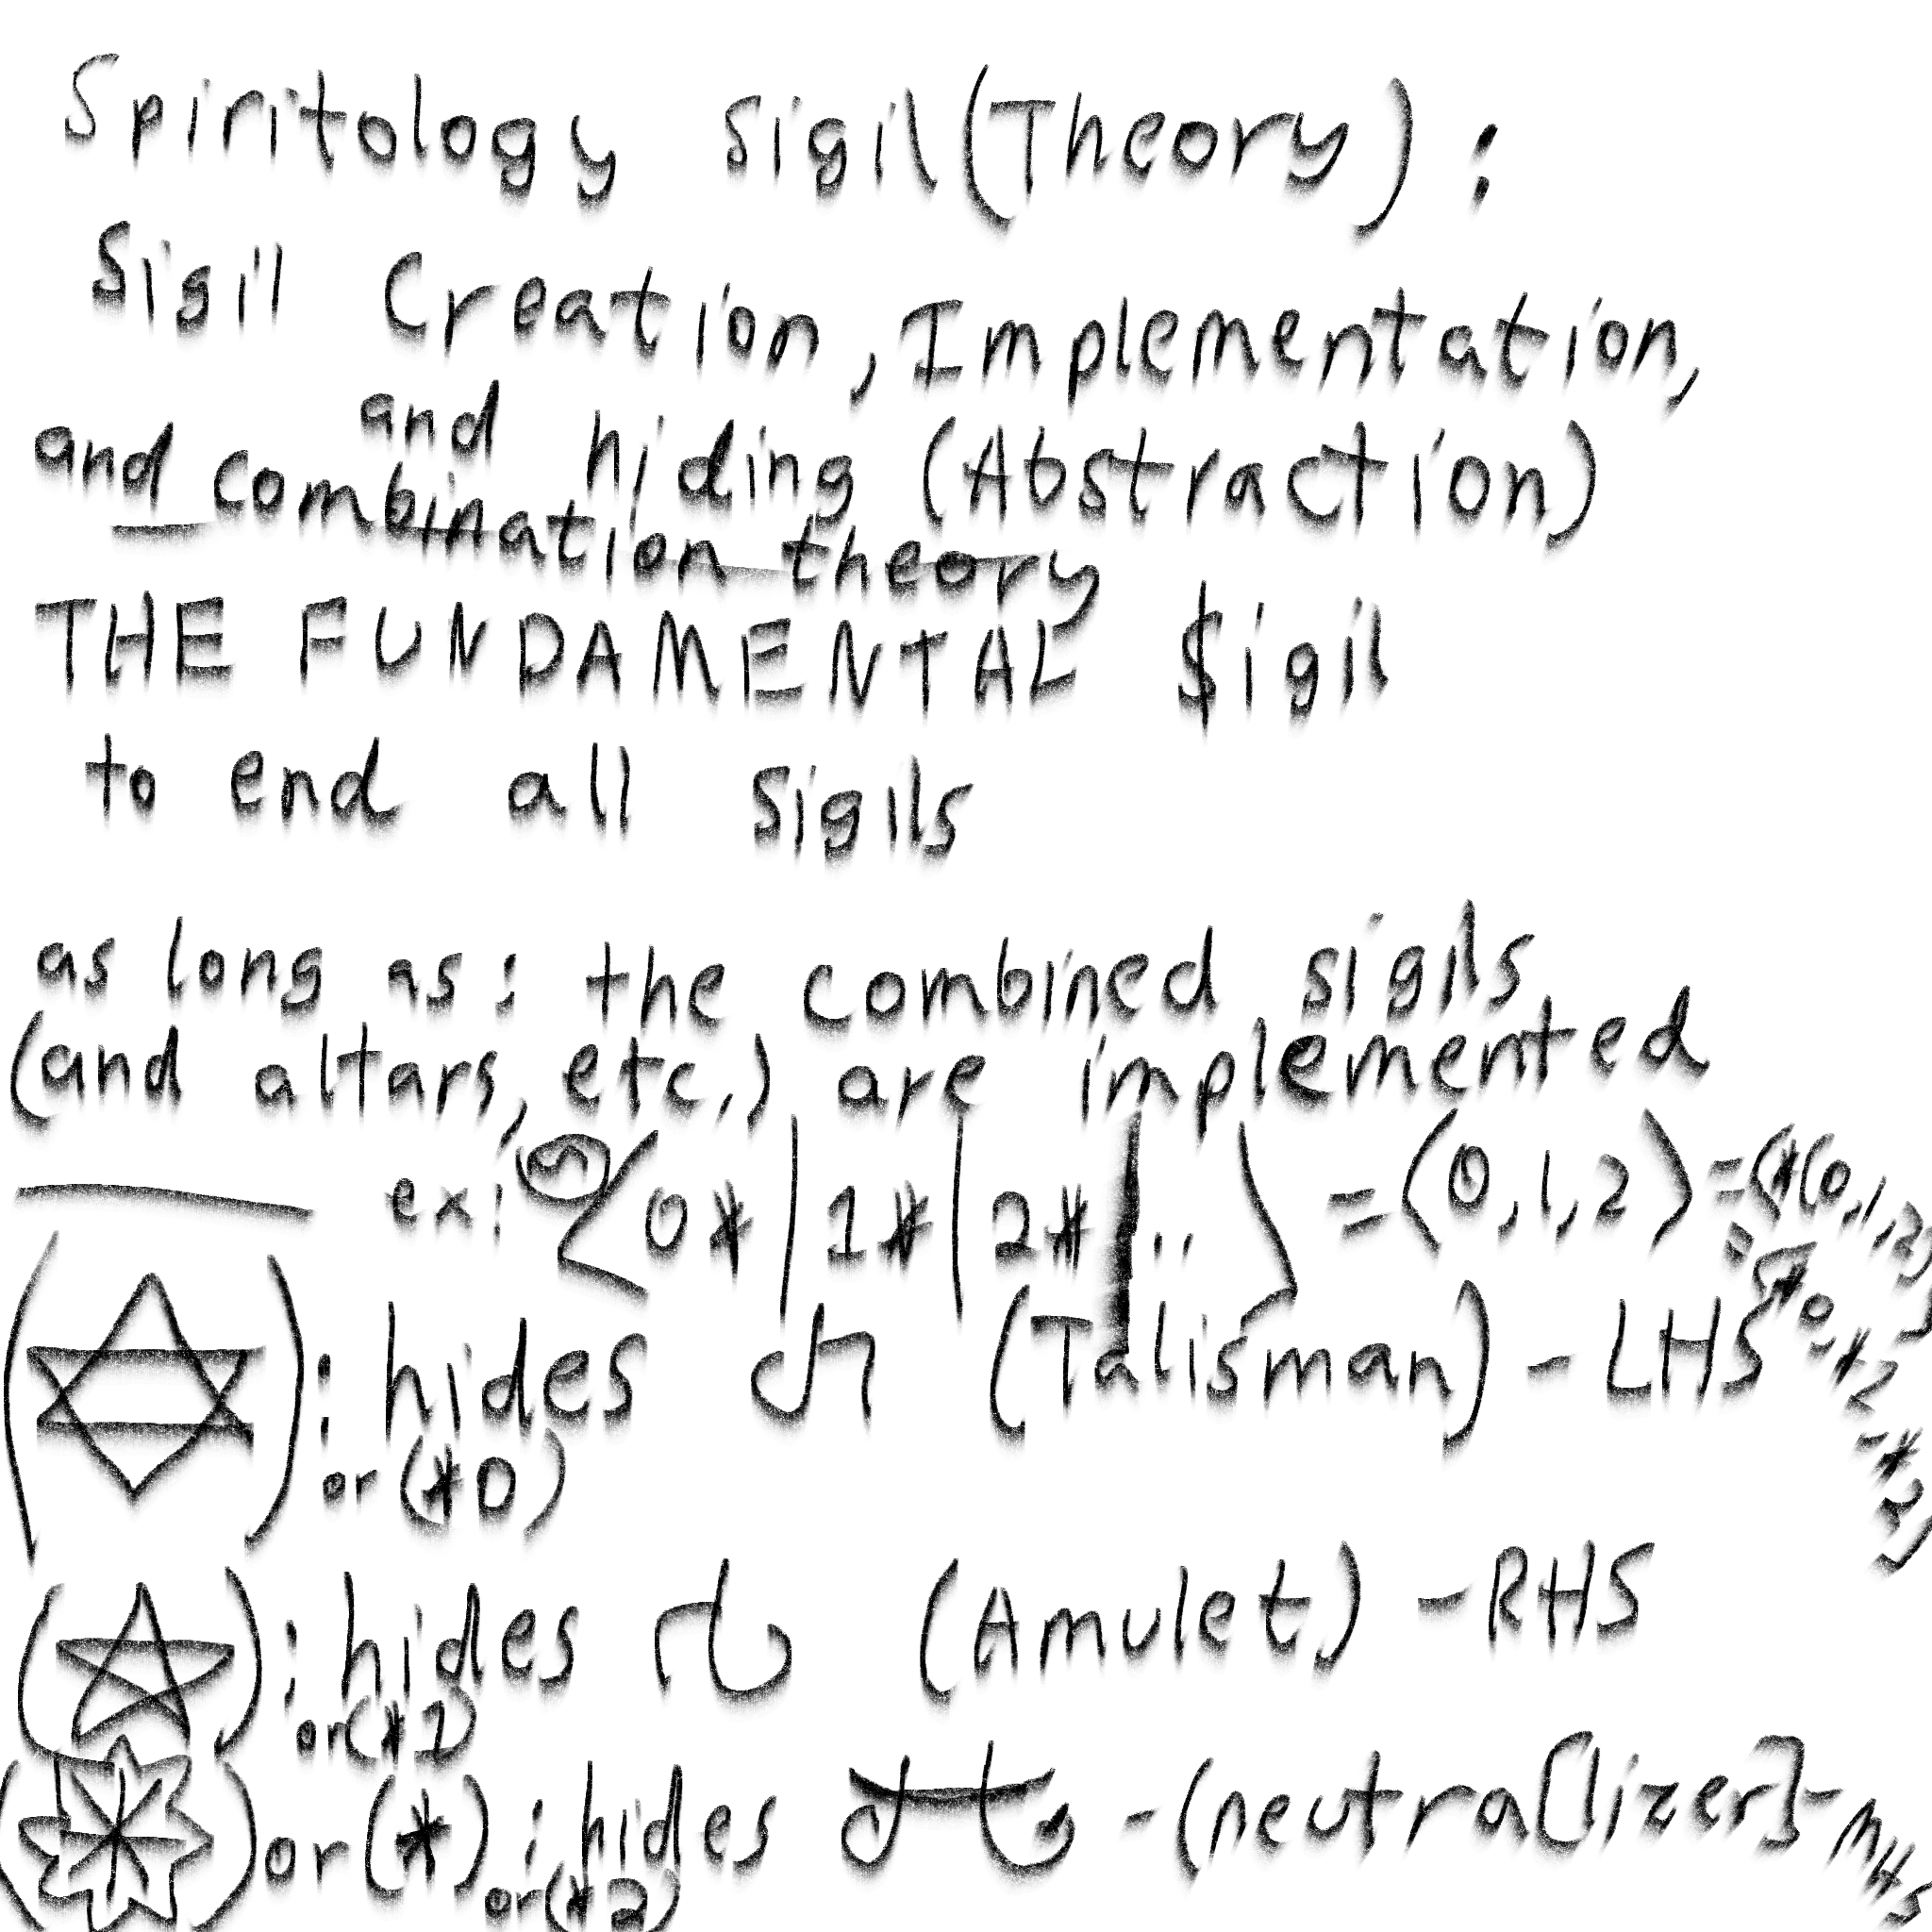 Spiritology Sigil(Theory):
Sigil Creation, Implementation,
and hiding (Abstraction)
and combination theory
THE FUNDAMENTAL $igil
to end all sigils
as long as: the combined sigils
(and altars, etc.) are implemented
ex: <0*|1*|2*|..> = <0,1,2>
( ): hides (Talisman) - LHS
or (*0)
( ): hides (Amulet) - RHS
or (*1)
( ) or (*): hides - (neutra[lizer] - MHS
or (*2)